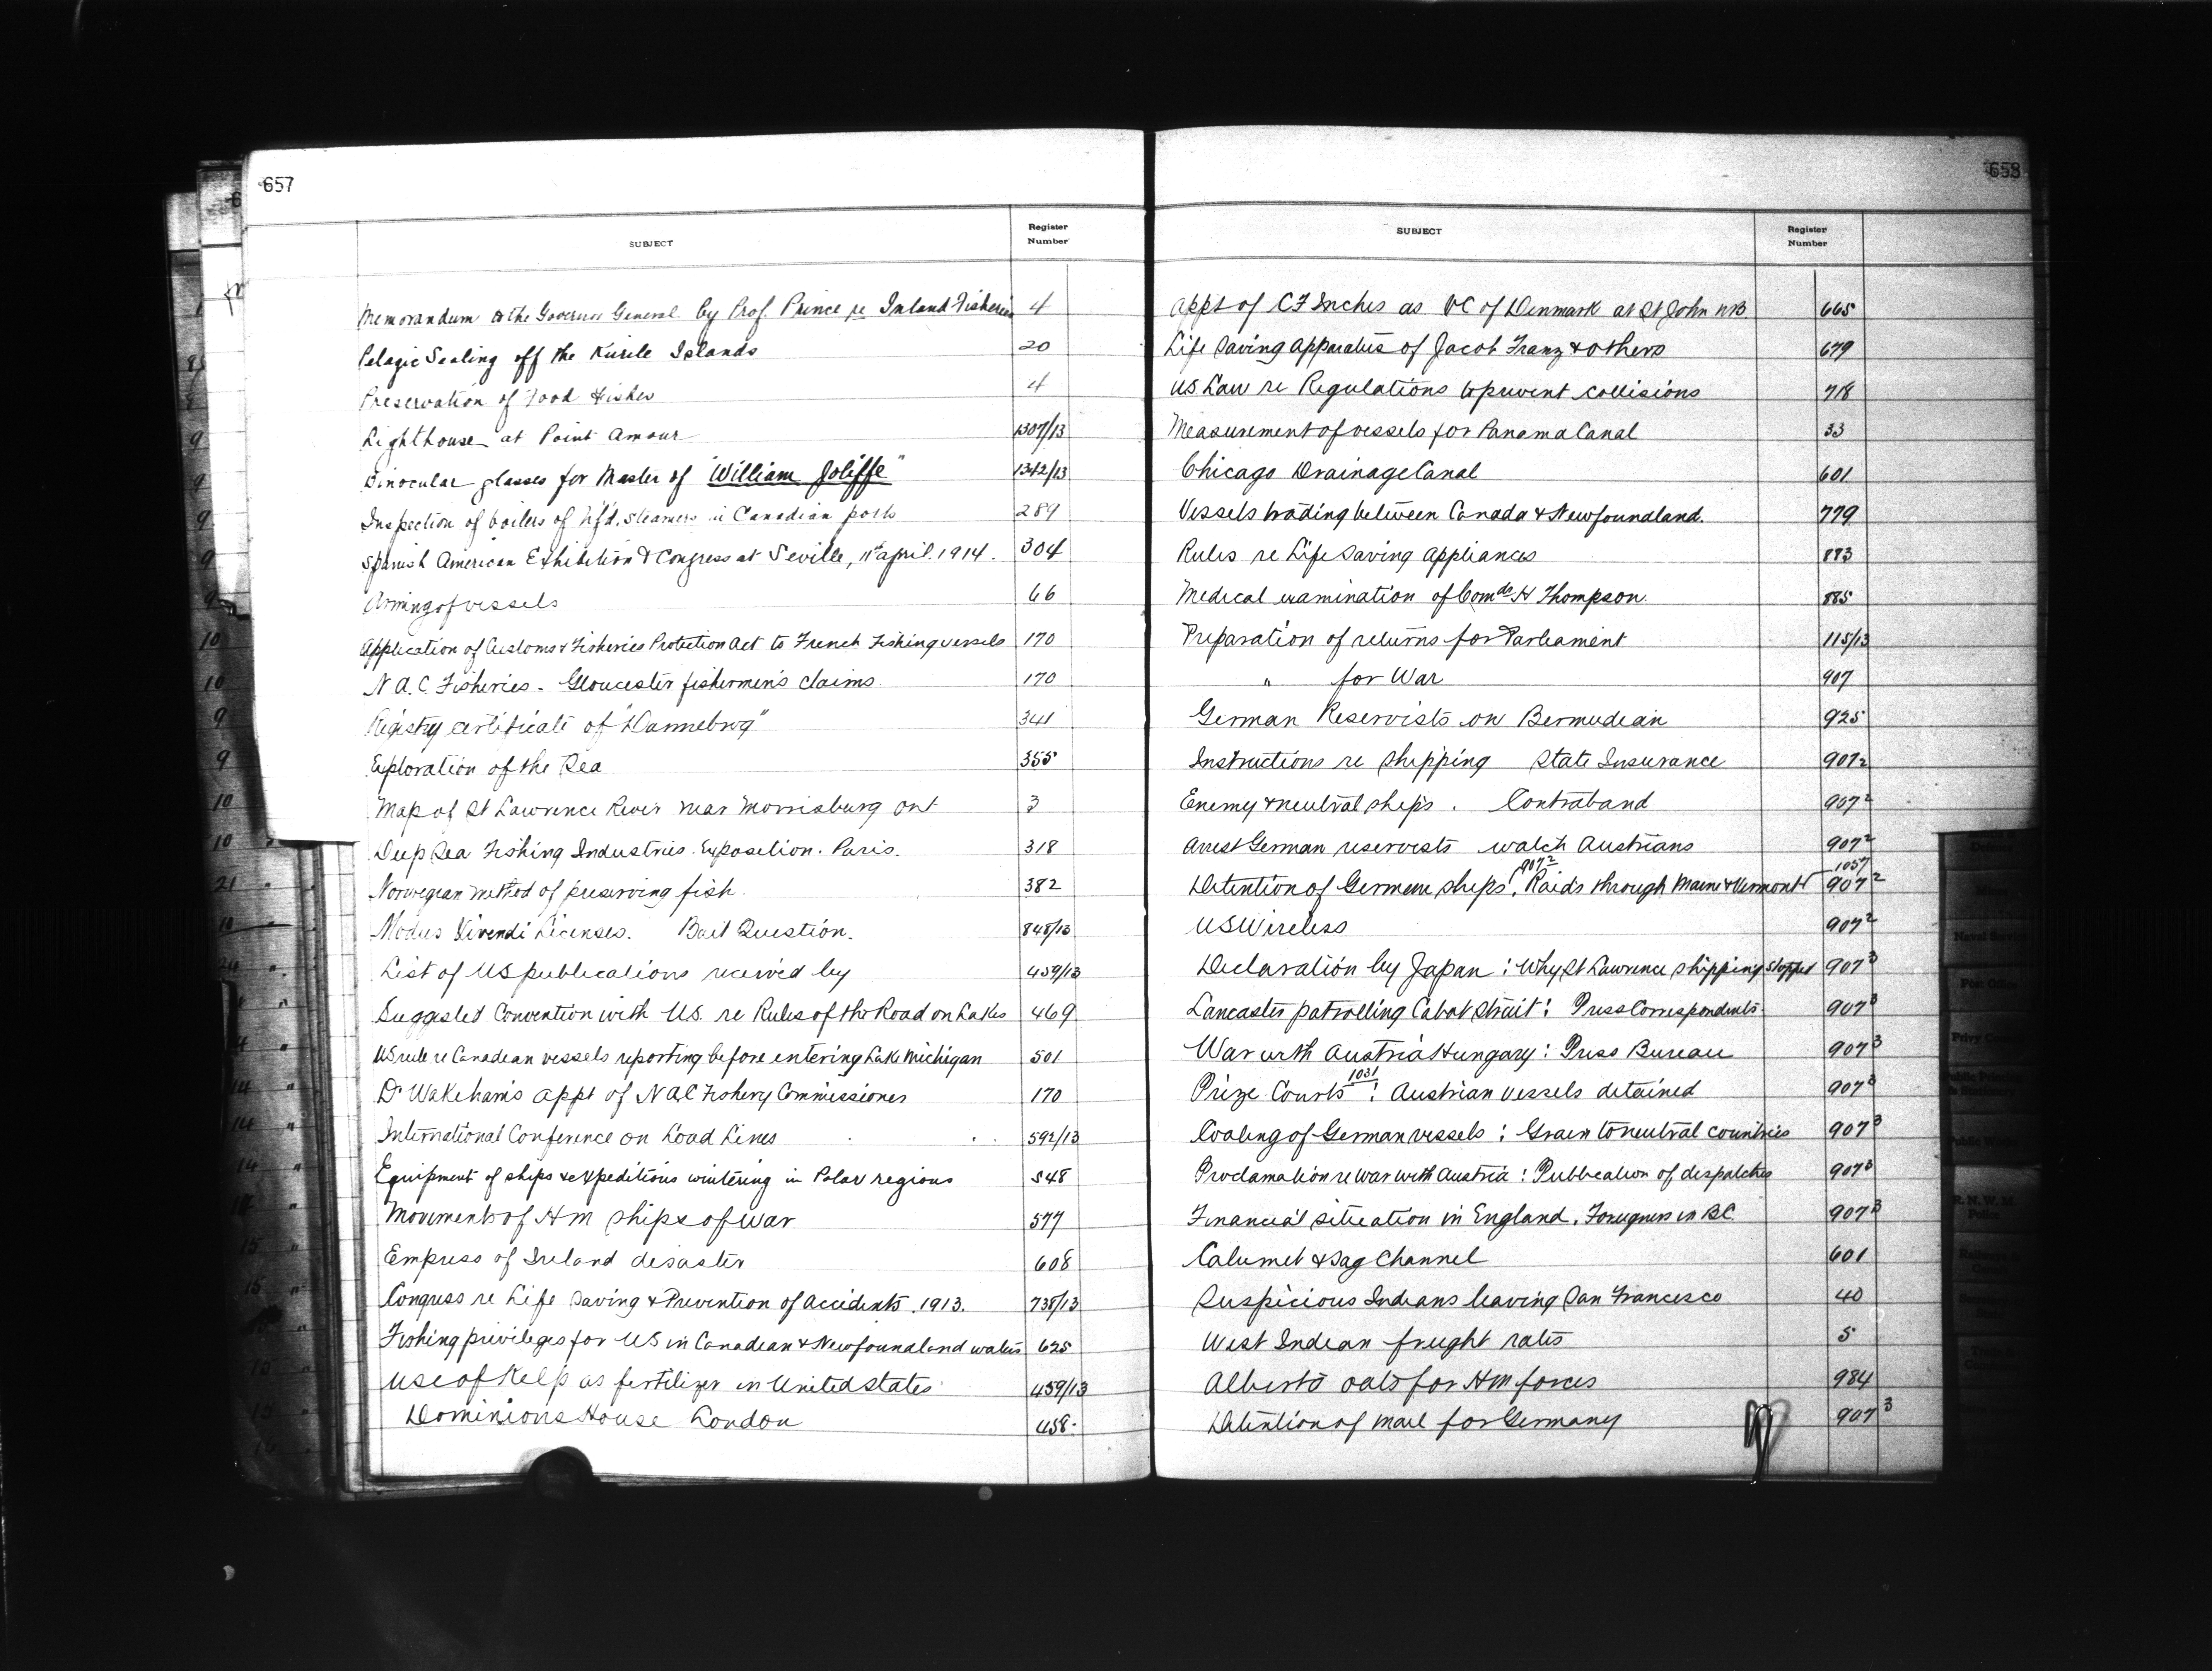 657
SUBJECT Register Number
Memorandum to the Governor General by Prof. Prince re Inland Fisheries 4
Pelagic Sealing off the Kurile Islands 20
Preservation of Food Fishes 4
Lighthouse at Point Amour 1307/13
Binocular glasses for Master of "William Joliffe" 1342/13
Inspection of boilers of Nfd. steamers in Canadian ports 289
Spanish American Exhibition & Congress at Seville, 11th april. 1914. 304
Arming of vessels 66
Application of Customs & Fisheries Protection Act to French Fishing vessels 170
N.A.C. Fisheries - Gloucester fishermen's claims 170
Registry certificate of "Dannebrog" 341
Exploration of the Sea 355
Map of St Lawrence River near Morrisburg Ont 3
Deep Sea Fishing Industries Exposition. Paris. 318
Norwegian method of preserving fish. 382
Modus Vivendi Licenses. Bait Question. 848/13
List of US publications received by 459/13
Suggested Convention with U.S. re Rules of the Road on Lakes 469
US rule re Canadian vessels reporting before entering Lake Michigan 501
Dr Wakeham's appt of NAC Fishery Commissioner 170
International Conference on Load Lines 592/13
Equipment of ships & expeditions wintering in Polar regions 548
Movements of HM ships of war 577
Empress of Ireland disaster 608
Congress re Life Saving & Prevention of Accidents. 1913. 738/13
Fishing privileges for US in Canadian & Newfoundland waters 625
Use of Kelp as fertilizer in United States 459/13
Dominions House London 458
658
SUBJECT Register Number
Appt of CF Inches as VC of Denmark at St John NB. 665
Life Saving apparatus of Jacob Franz & others 679
US Law re Regulations to prevent collisions 718
Measurement of vessels for Panama Canal 33
Chicago Drainage Canal 601
Vessels trading between Canada & Newfoundland. 779
Rules re Life Saving appliances 883
Medical examination of Comdr H Thompson 885
Preparation of returns for Parliament 115/13
" for War 907
German Reservists on Bermudian 925
Instructions re shipping State Insurance 907 2
Enemy & neutral ships. Contraband 907 2
Arrest German reservists watch Austrians 907 2
907 2 1057
Detention of German ships, Raids through Maine & Vermont 907 2
US Wireless 907 2
Declaration by Japan : Why St Lawrence shipping stopped 907 3
Lancaster patrolling Cabot Strait : Press Correspondents 907 3
War with Austria Hungary : Press Bureau 907 3
1031
Prize Courts : Austrian vessels detained 907 3
Coaling of German vessels : Grain to neutral countries 907 3
Proclamation re war with Austria : Publication of despatches 907 3
Financial situation in England. Foreigners in BC. 907 3
Calumet & Sag Channel 601
Suspicious Indians leaving San Francisco 40
West Indian freight rates 5
Alberta oats for HM forces 984
Detention of mail for Germany 907 3